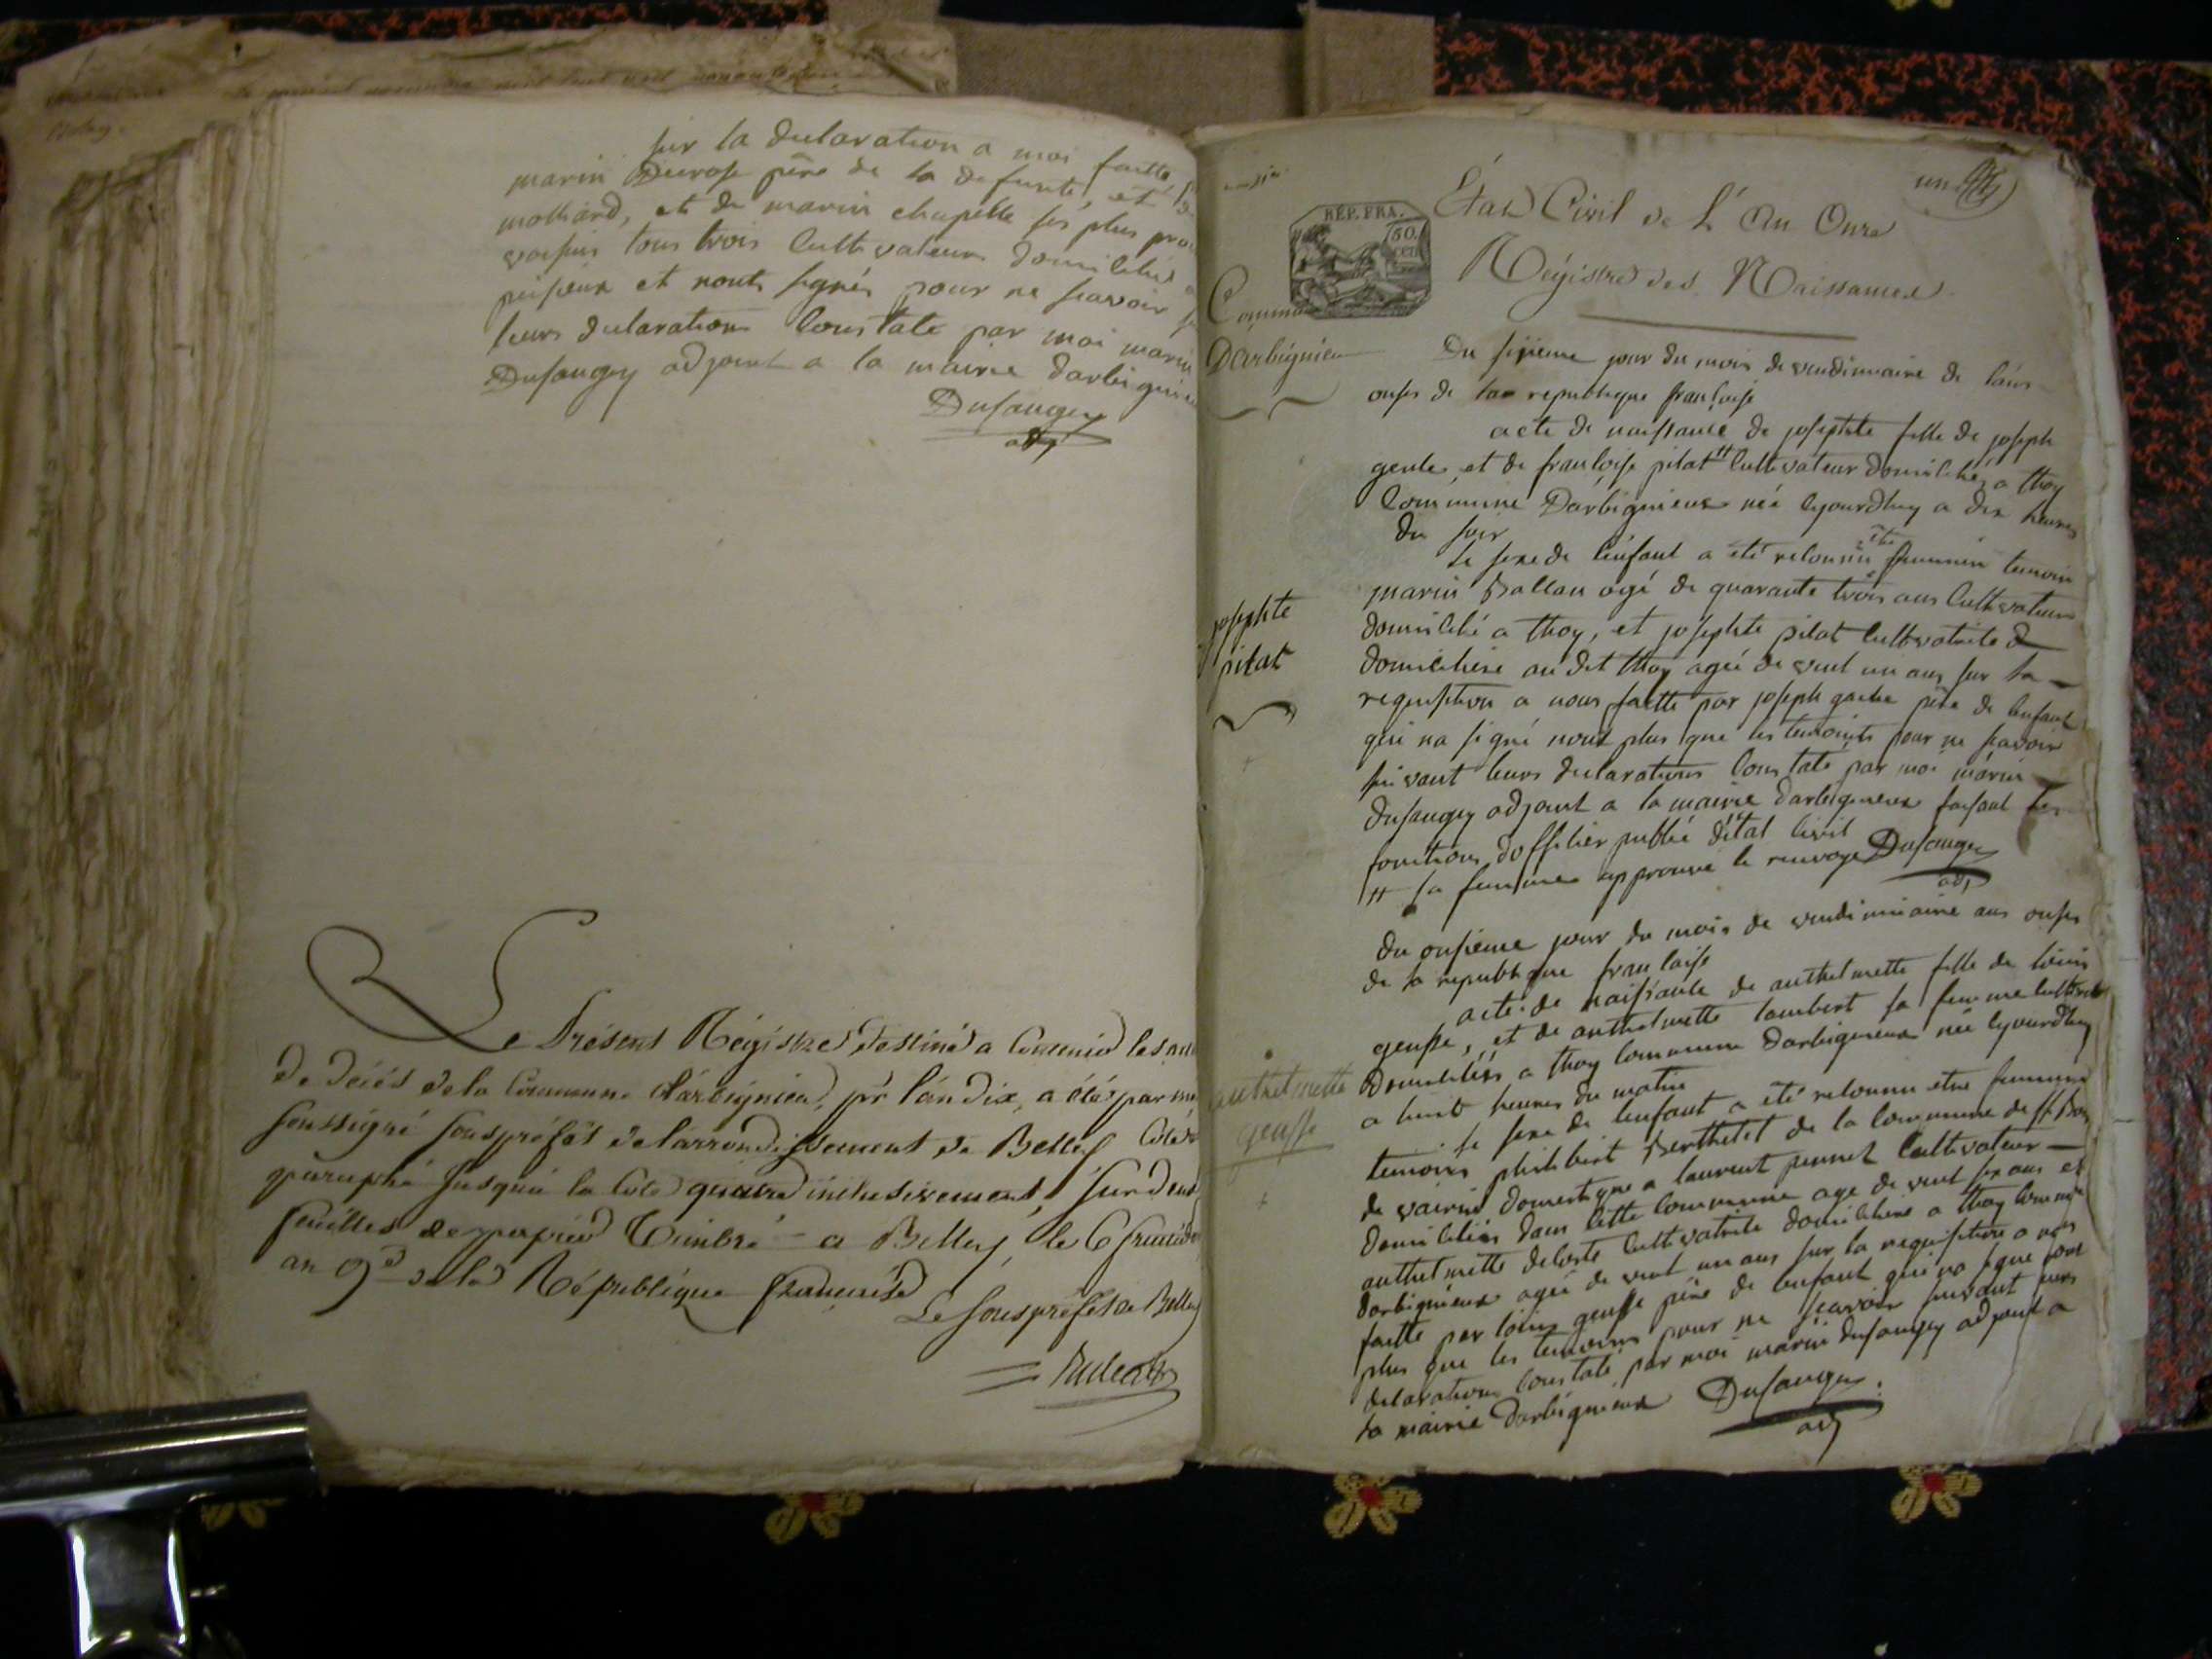 sur la declaration a moi faitte
marin Ducrose père de la defunte, et
molliard, et de marin chapelle ses plus
voisins tous trois cultivateurs domiciliés
peisieux et nonts signés pour ne scavoir
leurs declarations Constaté par moi marin
Dusaugey adjoint a la mairie darbignieu
Dusaugey
adj
Le Présent Régistre destiné a Contenir les
de décés de la Commune d'arbignieu, pr l'an dix, a été par
soussigné souspréfet de l'arrondissement de Belley Coté
paraphé jusqu'a la Cote quatre inclusivement, sur deux
feuilles de papier Timbré - a Belley, le 6 fructidor
an 9e de la République française
Le souspréfet de Belley
un
État Civil de L'An Onze
RÉP. FRA.
50.
CEN
Régistre des Naissances
Commune
Darbignieu
Du sixieme jour du mois de vendimiaire de lans
onses de la republique françoise
acte de naissance de josephte fille de joseph
gente et de françoise pilat # Cultivateur domiciliés a thoy
Commune Darbignieux née le jourdhuy a dix heures
du soir
Le sexe de lenfant a été reconnu etre feminin temoin
marin Ballan agé de quarante trois ans Cultivateur
josephte
pilat
domicilié a thoy, et josephte pilat Cultivatrice
domiciliére au dit thoy ageé de vint un ans sur la
requisition a nous faitte par joseph père de lenfant
qui na signé nont plus que les temoints pour ne scavoir
suivant leurs declarations Constaté par moi marin
dusaugey adjoint a la mairie darbignieux faisant les
fonctions dofficier public détat Civil
# sa femme approuvé le renvoye Dusaugey
adj
du onsieme jour du mois de vendimiaire ans onses
de la republique françaisse
acte de naissance de anthelmette fille de louis
geusse, et de anthelmette lambert sa femme Cultivateur
anthelmette
geusse
Domiciliés a thoy Commune darbignieux née le jourdhuy
a huit heures du matin
Le sexe de lenfant a été reconnu etre feminin
temoins philibert Berthelet de la Commune de st Bois
de vairin domestique a laurent pennet Cultivateur
domiciliés dans cette Commune age de vint six ans et
anthelmette delorte Cultivatrice domiciliére a thoy Commune
darbignieux ageé de vint un ans sur la requisition a nous
faitte par louis geusse père de lenfant qui na signé nont
plus que les temoins pour ne scavoir suivant leurs
declarations Constaté par moi marin dusaugey adjoint a
la mairie darbignieux Dusaugey
adj